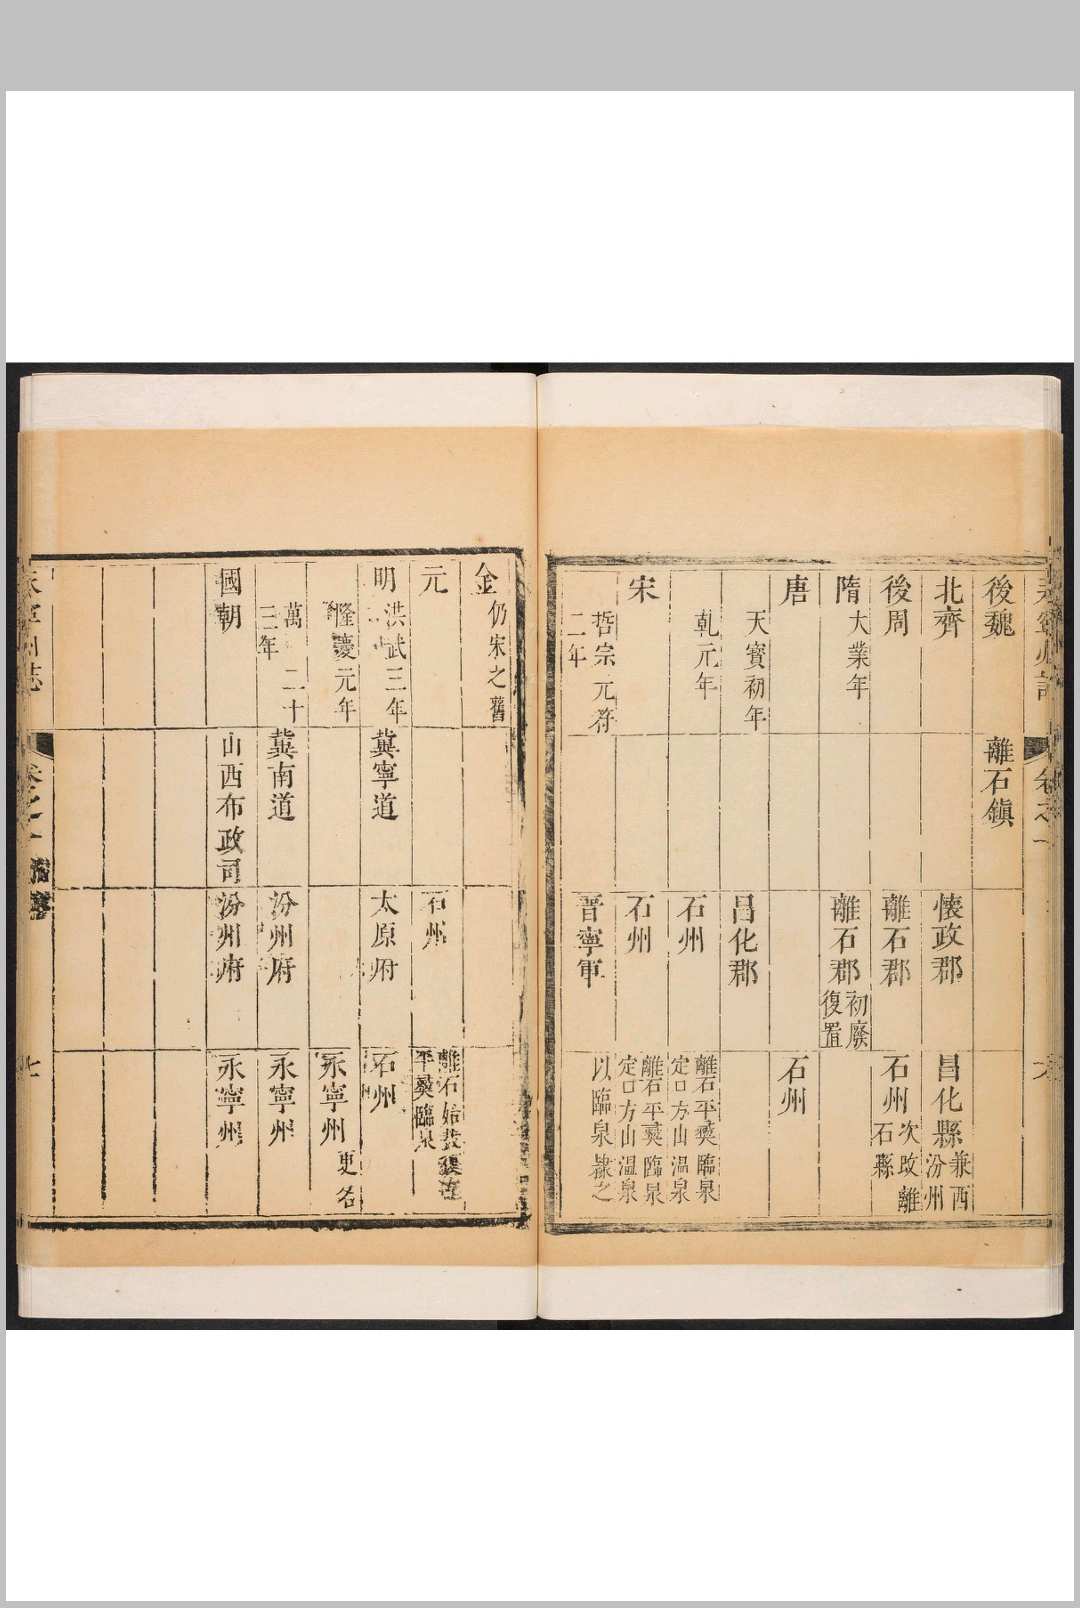 永寧州誌
卷之一
後魏
離石鎮
北齊
懷政郡
昌化縣
兼西
汾州
後周
離石郡
石州
次改離
石縣
隋
大業年
離石郡
初廢
復置
唐
石州
天寶初年
昌化郡
乾元年
石州
離石平夷臨泉
定口方山溫泉
宋
石州
離石平夷臨泉
定口方山溫泉
哲宗元符
二年
晉寧軍
以臨泉隸之
金
仍宋之舊
元
石州
離石
平夷臨泉
明
洪武三年
冀寧道
太原府
石州
隆慶元年
永寧州
更名
萬 二十
三年
冀南道
汾州府
永寧州
國朝
山西布政司
汾州府
永寧州
永寧州誌
卷之一
七